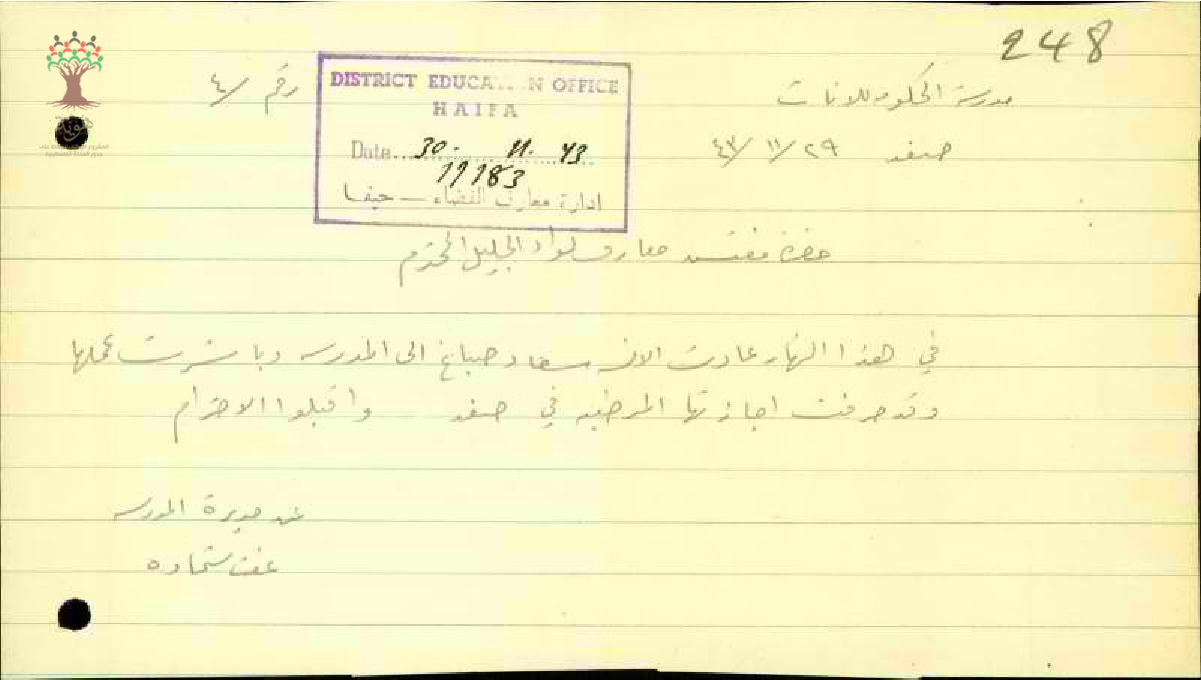 248
مدرسة الحكومه للاناث
رقم /٤
صفد ٢٩/١١/٤٣
DISTRICT EDUCA...N OFFICE
HAIFA
Date... 30. 11. 43
19183
ادارة معارف القضاء — حيفا
حضرة مفتش معارف لواء الجليل المحترم
في هذا النهار عادت الانسه سعاد صباغ الى المدرسه وباشرت عملها
وقد صرفت اجازتها المرضيه في صفد واقبلوا الاحترام
عن مديرة المدرسه
عفت شحاده